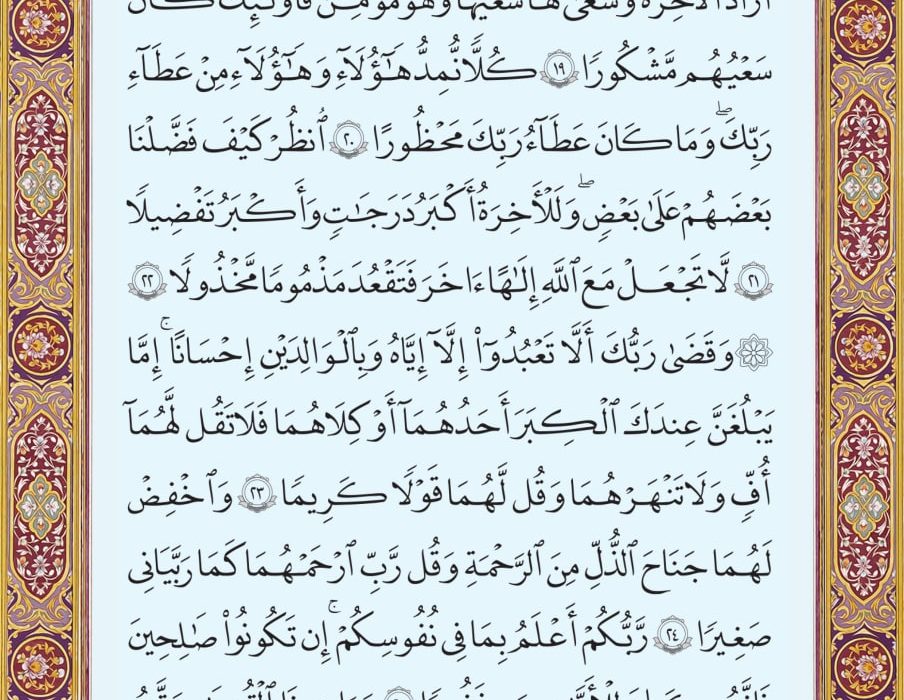 أَرَادَ ٱلْأٓخِرَةَ وَسَعَىٰ لَهَا سَعْيَهَا وَهُوَ مُؤْمِنٌ فَأُو۟لَٰٓئِكَ كَانَ
سَعْيُهُم مَّشْكُورًا ١٩ كُلًّا نُّمِدُّ هَٰٓؤُلَآءِ وَهَٰٓؤُلَآءِ مِنْ عَطَآءِ
رَبِّكَۖ وَمَا كَانَ عَطَآءُ رَبِّكَ مَحْظُورًا ٢٠ ٱنظُرْ كَيْفَ فَضَّلْنَا
بَعْضَهُمْ عَلَىٰ بَعْضٍۖ وَلَلْأَخِرَةُ أَكْبَرُ دَرَجَٰتٍ وَأَكْبَرُ تَفْضِيلًا
٢١ لَّا تَجْعَلْ مَعَ ٱللَّهِ إِلَٰهًا ءَاخَرَ فَتَقْعُدَ مَذْمُومًا مَّخْذُولًا ٢٢
۞ وَقَضَىٰ رَبُّكَ أَلَّا تَعْبُدُوٓا۟ إِلَّآ إِيَّاهُ وَبِٱلْوَٰلِدَيْنِ إِحْسَٰنًاۚ إِمَّا
يَبْلُغَنَّ عِندَكَ ٱلْكِبَرَ أَحَدُهُمَآ أَوْ كِلَاهُمَا فَلَا تَقُل لَّهُمَآ
أُفٍّ وَلَا تَنْهَرْهُمَا وَقُل لَّهُمَا قَوْلًا كَرِيمًا ٢٣ وَٱخْفِضْ
لَهُمَا جَنَاحَ ٱلذُّلِّ مِنَ ٱلرَّحْمَةِ وَقُل رَّبِّ ٱرْحَمْهُمَا كَمَا رَبَّيَانِى
صَغِيرًا ٢٤ رَّبُّكُمْ أَعْلَمُ بِمَا فِى نُفُوسِكُمْۚ إِن تَكُونُوا۟ صَٰلِحِينَ